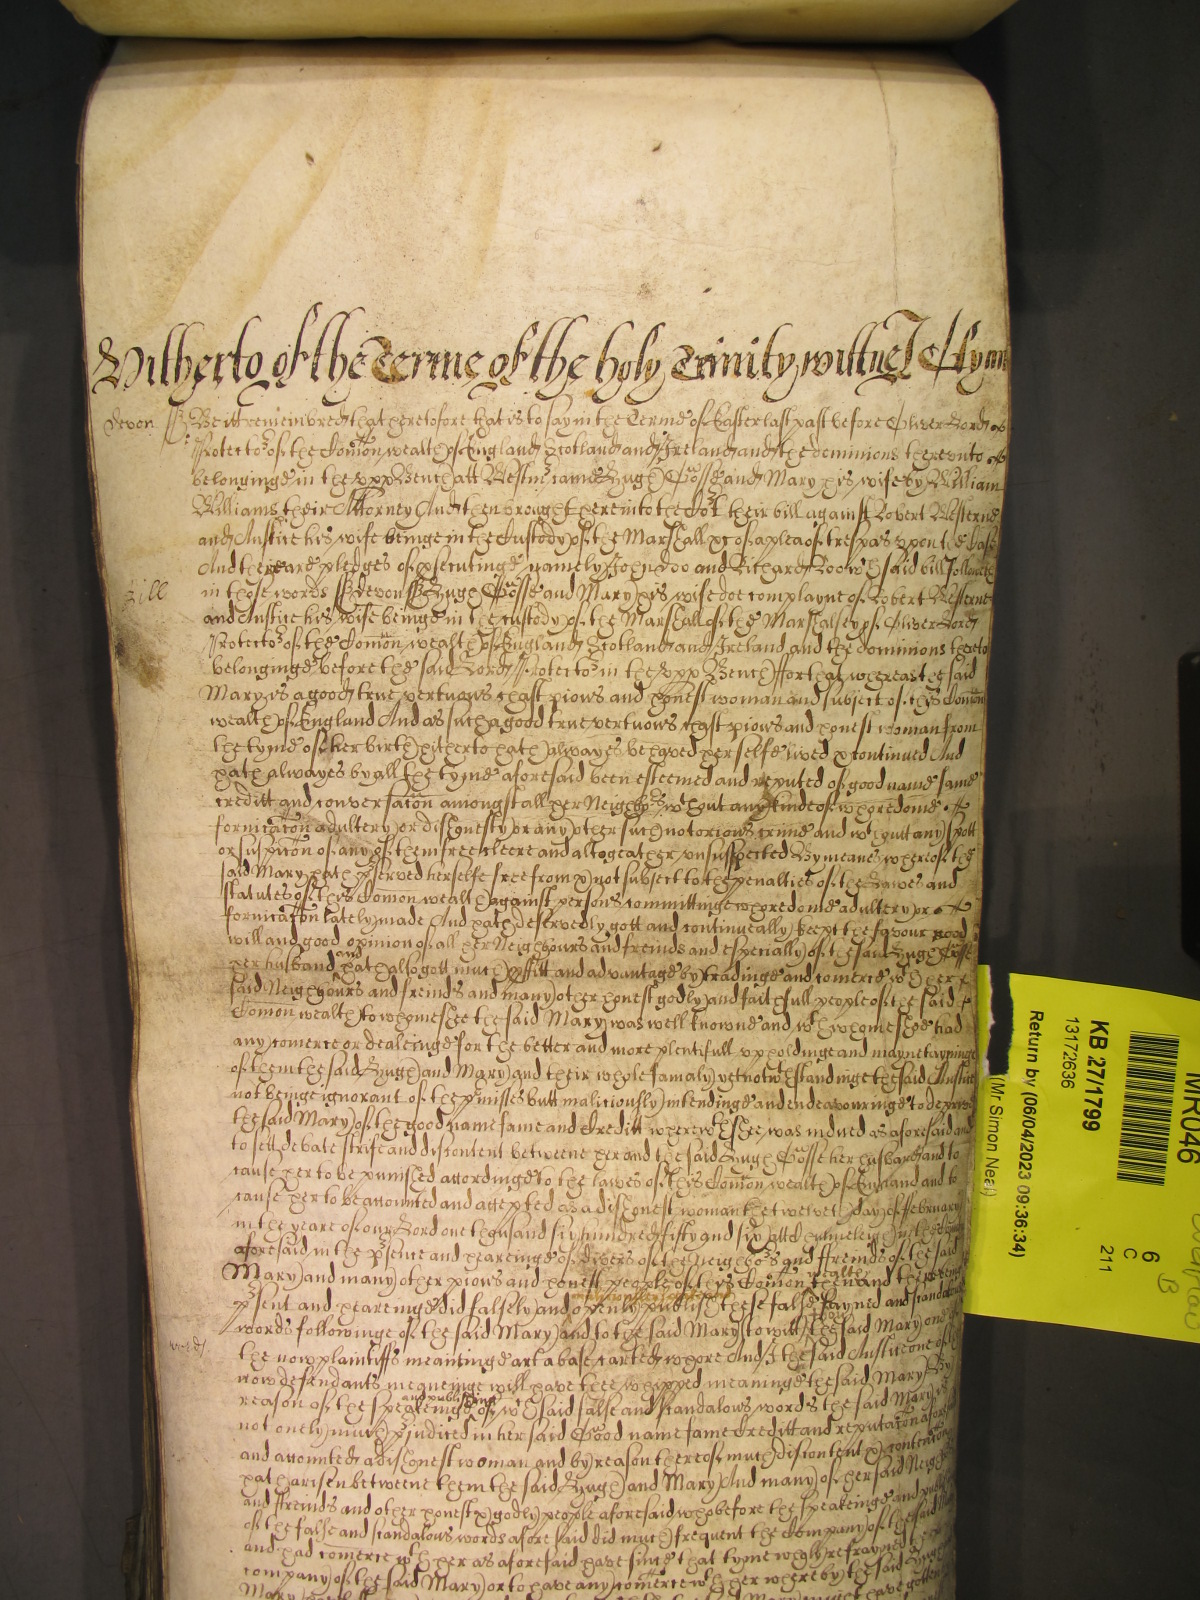 Hitherto of the Terme of the holy Trinity, wittnes
Devon ss Be itt remembred that heretofore that is to say in the Terme of Easter last past before Oliver Lord
Protector of the Comōn wealth of England Scotland and Ireland and the dominions thereunto
belonginge in the upp Bench att Westmr came Hugh Crosse and Mary his wife by William
Williams their Attorney And then brought here into the Cort their bill against Robert Westerne
and Anstice his wife beinge in the Custody of the Marshall &c of a plea of trespas upon the Case
And there are pledges of psecutinge namely John Doo and Richard Roo wch said bill followeth
Bill
in these words ss Devon ss Hugh Crosse and Mary his wife doe complayne of Robert Westerne
and Anstice his wife beinge in the custody of the Marshall of the Marshalsey of Oliver Lord
Protector of the Comōn wealth of England Scotland and Ireland and the dominions thereto
belonginge before the said Lord Protector in the upp Bench ffor that whereas the said
Mary is a good true vertuows chast piows and honest woman and subject of this Comōn
wealth of England And as such a good true vertuows chast piows and honest woman from
the tyme of her birth hitherto hath alwayes behaved herselfe lived & continued And
hath alwayes by all the tyme aforesaid been esteemed and reputed of good name fame
creditt and conversatōn amongst all her Neighbors wthout any kinde of whoredome
fornicatōn adultery or dishonesty or any other such notoriows crime and wthoutt any spott
or suspitōn of any of them free cleere and altogeather unsuspected By meanes whereof the
said Mary hath pserved herselfe free from & not subject to the penalties of the Lawes and
statutes of this Comōn wealth against persons committinge whoredome adultery or
fornicatōn lately made And hath deservedly gott and continually keept the favour good
will and good opinion of all her Neighbours and freinds and especially of the said Hugh Crosse
her husband and hath also gott much pffitt and advantage by tradinge and comerce wth her
said Neighbours and freinds and many other honest godly and faithfull people of the said
Comōn wealth to whome shee the said Mary was well knowne and wth whome shee had
any comerce or dealeinge for the better and more plentifull upholdinge and mayntayninge
of them the said Hugh and Mary and their whole famaly yet notwthstandinge the said Anstice
not being ignorant of the pmisses butt maliciously intendinge and endeavouringe to deprive
the said Mary of the good name fame and Creditt wherewth shee was indued as aforesaid and
to sett debate strife and discontent betweene her and the said Hugh Crosse her husband and to
cause her to be punished accordinge to the lawes of this Comōn wealth of England and to
cause her to be accounted and accepted as a dishonest woman the twelveth day of February
in the yeare of our Lord one thousand six hundred fifty and six att
aforesaid in the psence and heareinge of divers of the neighbors and ffreinds of the said
Mary and many other piows and honest people of this Comōn wealth then and there beinge
psent and heareinge did falsely and openly publish these false fayned and scandalows
words followinge of the said Mary and to the said Mary (to witt) thou the said Mary one of
words
the now plaintiffs meaninge art a base carted whore And I the said Anstice one of the
now defendants meaneinge will have thee whipped meaninge the said Mary By
reason of the speakinge and publishinge of wch said false and scandalows words the said Mary is
not onely much pjudiced in her said Good name fame Creditt and reputatōn aforesaid
and accounted a dishonest woman and by reason thereof much discontent & contention
hath arisen betweene them the said Hugh and Mary And many of her said Neighbours
and ffreinds and other honest & godly people aforesaid who before the speakeinge and publishinge
of the false and scandalous words aforesaid did much frequent the Company of the said Mary
and had comerce wth her as aforesaid have since that tyme wholly refrayned
company of the said Mary or to have any comerce wth her whereby the said Hugh
MR046
KB 27/1799
13172636
Return by (06/04/2023 09:36:34)
(Mr Simon Neal)
6
C
211